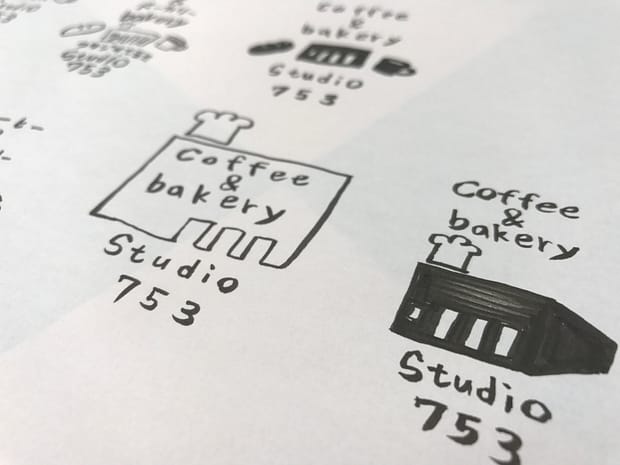 bakery
Studio
753
Coffee
&
bakery
Studio
753
Coffee
&
bakery
Studio
753
Coffee
&
bakery
Studio
753